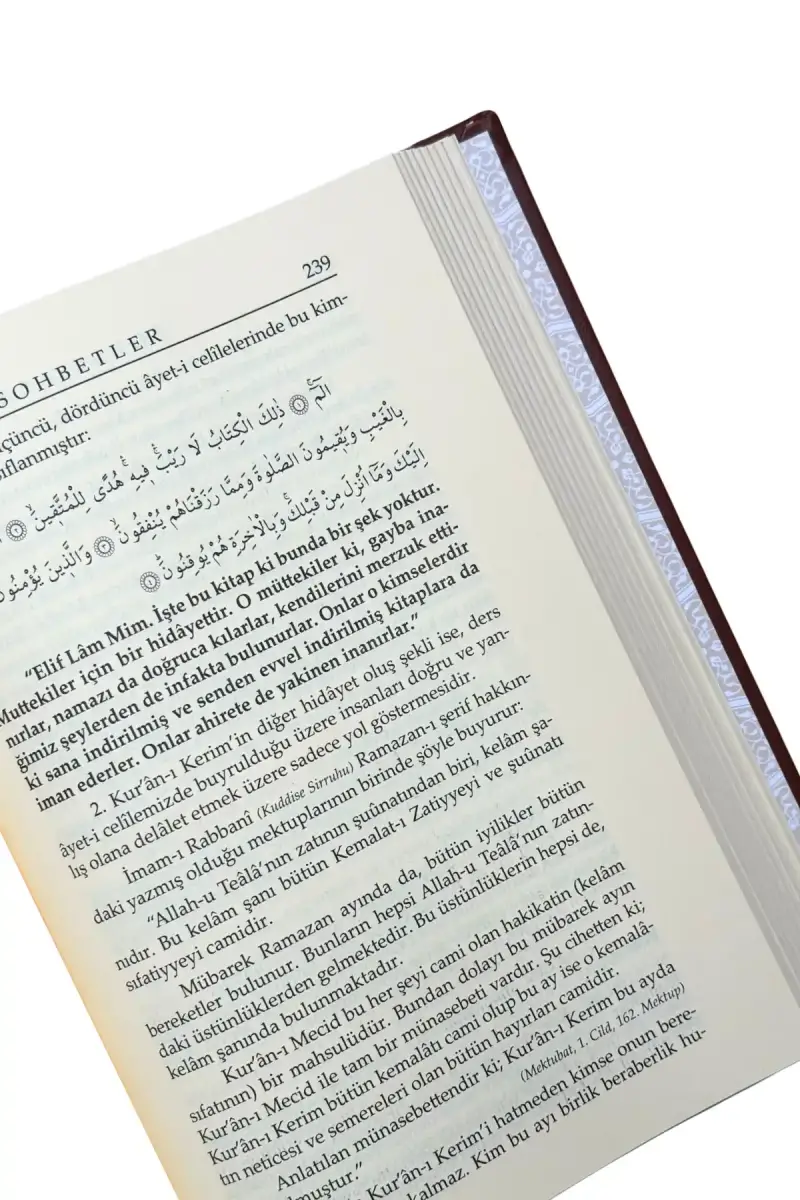 239
SOHBETLER
üçüncü, dördüncü âyet-i celîlelerinde bu kim-
ıflanmıştır:
الٓمٓ ﴿١﴾ ذٰلِكَ الْكِتَابُ لَا رَيْبَۚ ف۪يهِۚ هُدًى لِلْمُتَّق۪ينَۙ ﴿٢﴾
بِالْغَيْبِ وَيُق۪يمُونَ الصَّلٰوةَ وَمِمَّا رَزَقْنَاهُمْ يُنْفِقُونَۙ ﴿٣﴾ وَالَّذ۪ينَ يُؤْمِنُونَ
اِلَيْكَ وَمَٓا اُنْزِلَ مِنْ قَبْلِكَۚ وَبِالْاٰخِرَةِ هُمْ يُوقِنُونَۜ ﴿٤﴾
“Elif Lâm Mim. İşte bu kitap ki bunda bir şek yoktur.
Muttekiler için bir hidâyettir. O müttekiler ki, gayba ina-
nırlar, namazı da doğruca kılarlar, kendilerini merzuk etti-
ğimiz şeylerden de infakta bulunurlar. Onlar o kimselerdir
ki sana indirilmiş ve senden evvel indirilmiş kitaplara da
iman ederler. Onlar ahirete de yakinen inanırlar.”
2. Kur’ân-ı Kerim’in diğer hidâyet oluş şekli ise, ders
âyet-i celîlemizde buyrulduğu üzere insanları doğru ve yan-
lış olana delâlet etmek üzere sadece yol göstermesidir.
İmam-ı Rabbanî (Kuddise Sirruhu) Ramazan-ı şerif hakkın-
daki yazmış olduğu mektuplarının birinde şöyle buyurur:
“Allah-u Teâlâ’nın zatının şuûnatından biri, kelâm şa-
nıdır. Bu kelâm şanı bütün Kemalat-ı Zatiyyeyi ve şuûnatı
sıfatiyyeyi camidir.
Mübarek Ramazan ayında da, bütün iyilikler bütün
bereketler bulunur. Bunların hepsi Allah-u Teâlâ’nın zatın-
daki üstünlüklerden gelmektedir. Bu üstünlüklerin hepsi de,
kelâm şanında bulunmaktadır.
Kur’ân-ı Mecid bu her şeyi cami olan hakikatin (kelâm
sıfatının) bir mahsulüdür. Bundan dolayı bu mübarek ayın
Kur’ân-ı Mecid ile tam bir münasebeti vardır. Şu cihetten ki;
Kur’ân-ı Kerim bütün kemalâtı cami olup bu ay ise o kemalâ-
tın neticesi ve semereleri olan bütün hayırları camidir.
Anlatılan münasebettendir ki; Kur’ân-ı Kerim bu ayda
lmuştur.” (Mektubat, 1. Cild, 162. Mektup)
Kur’ân-ı Kerim’i hatmeden kimse onun bere-
kalmaz. Kim bu ayı birlik beraberlik hu-